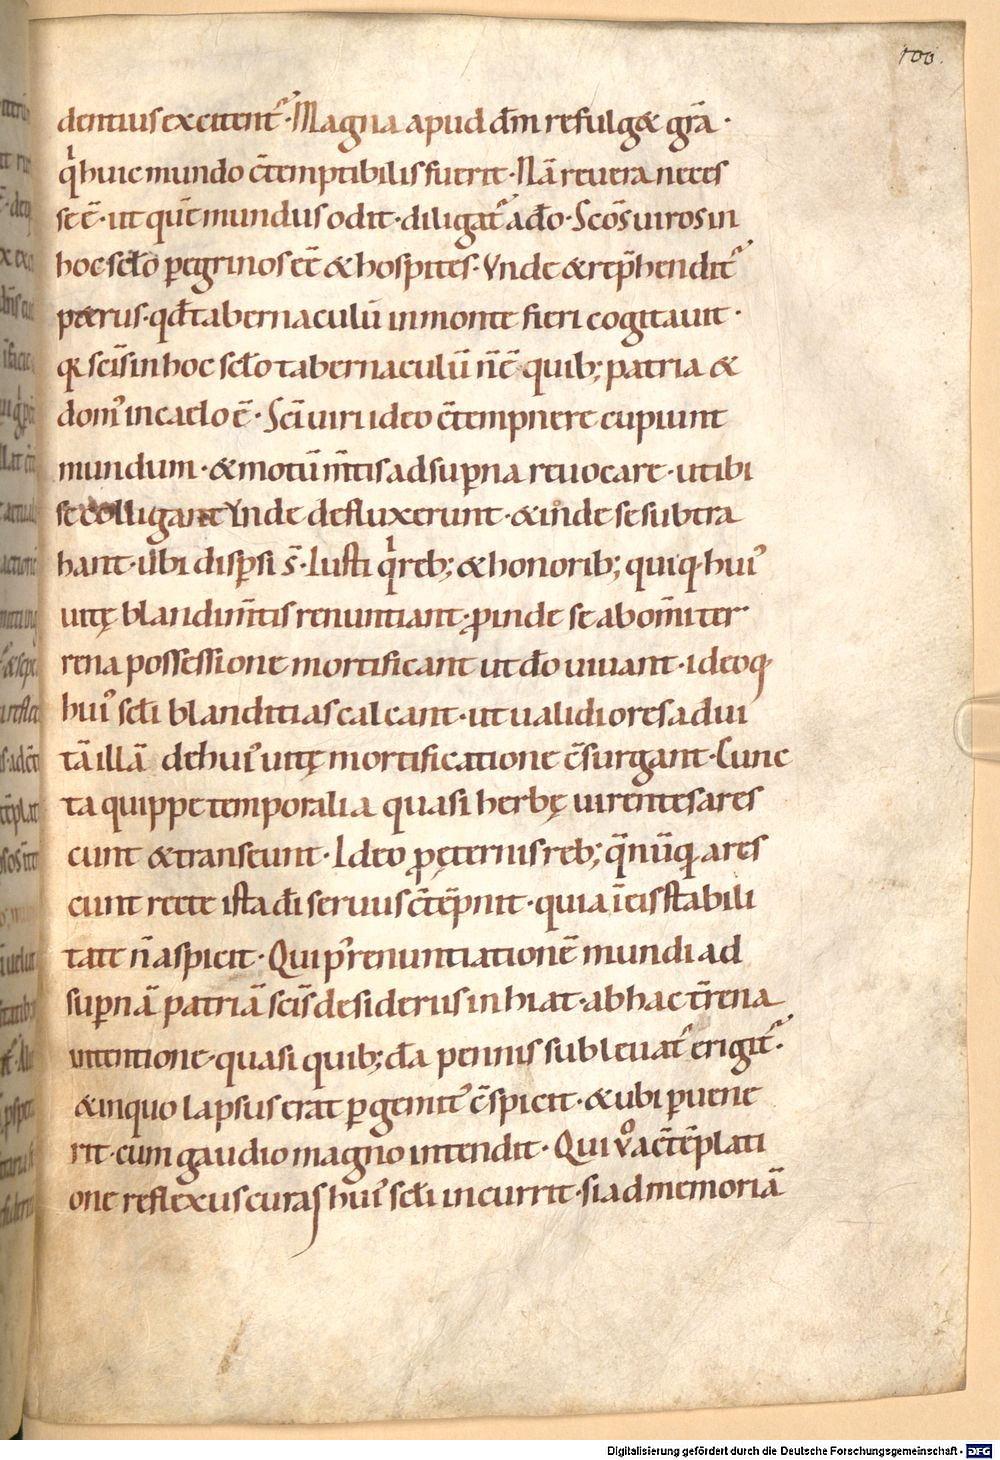 100.
dentius excitent᷑ · Magna apud dm̄ refulg& gr̄a ·
qͥ huic mundo c̄temptibilis fuerit · Nā reuera neces
se ē · ut quē mundus odit · diligat᷑ a d̄o · Sc̄os uiros in
hoc scl̄o peregrinos eē & hospites · Vnde & rep̄hendit᷑
p&rus · qd̄ tabernaculū in monte fieri cogitauit ·
qꝛ sc̄is in hoc scl̄o tabernaculū n̄ ē · quib; patria &
domꝰ in caelo ē · Sc̄i uiri ideo c̄tempnere cupiunt
mundum · & motū m̄tis ad sup̱na reuocare · ut ibi
se colligant Vnde defluxerunt · & inde se subtra
hant · ubi disp̱si s̄ · Iusti qͥ reb; & honorib; quiq · huiꝰ
uitę blandim̄tis renuntiant · ꝓinde se ab om̄i ter
rena possessione mortificant ut d̄o uiuant · ideoq;
huiꝰ scl̄i blanditias calcant · ut ualidiores ad ui
tā illā de huiꝰ uitę mortificatione c̄surgant · Cunc
ta quippe temporalia quasi herbę uirentes ares
cunt & transeunt · Ideo ꝓ ęternis reb; q̄ nūq̄ ares
cunt recte ista dī seruus c̄tēpnit · quia ī eis stabili
tatē n̄ aspicit · Qui pꝰ renuntiationē mundi ad
sup̱nā patriā sc̄is desideriis inhiat · ab hac t̄rena
intentione · quasi quib; dā pennis subleuat᷑ erigit᷑ ·
& in quo lapsus erat ꝑ gemitꝰ c̄spicit · & ubi ꝑuene
rit · cum gaudio magno intendit · Qui v̊ a c̄tēplati
one reflexus curas huiꝰ scl̄i incurrit · si ad memoriā
Digitalisierung gefördert durch die Deutsche Forschungsgemeinschaft - DFG